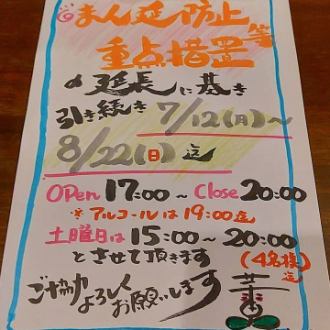 まん延防止等
重点措置
の延長に基き
引き続き 7/12(月)〜
8/22(日)迄
OPen 17:00〜Close 20:00
※アルコールは19:00迄
土曜日は15:00〜20:00
とさせて頂きます(4名様迄)
ご協力よろしくお願いします